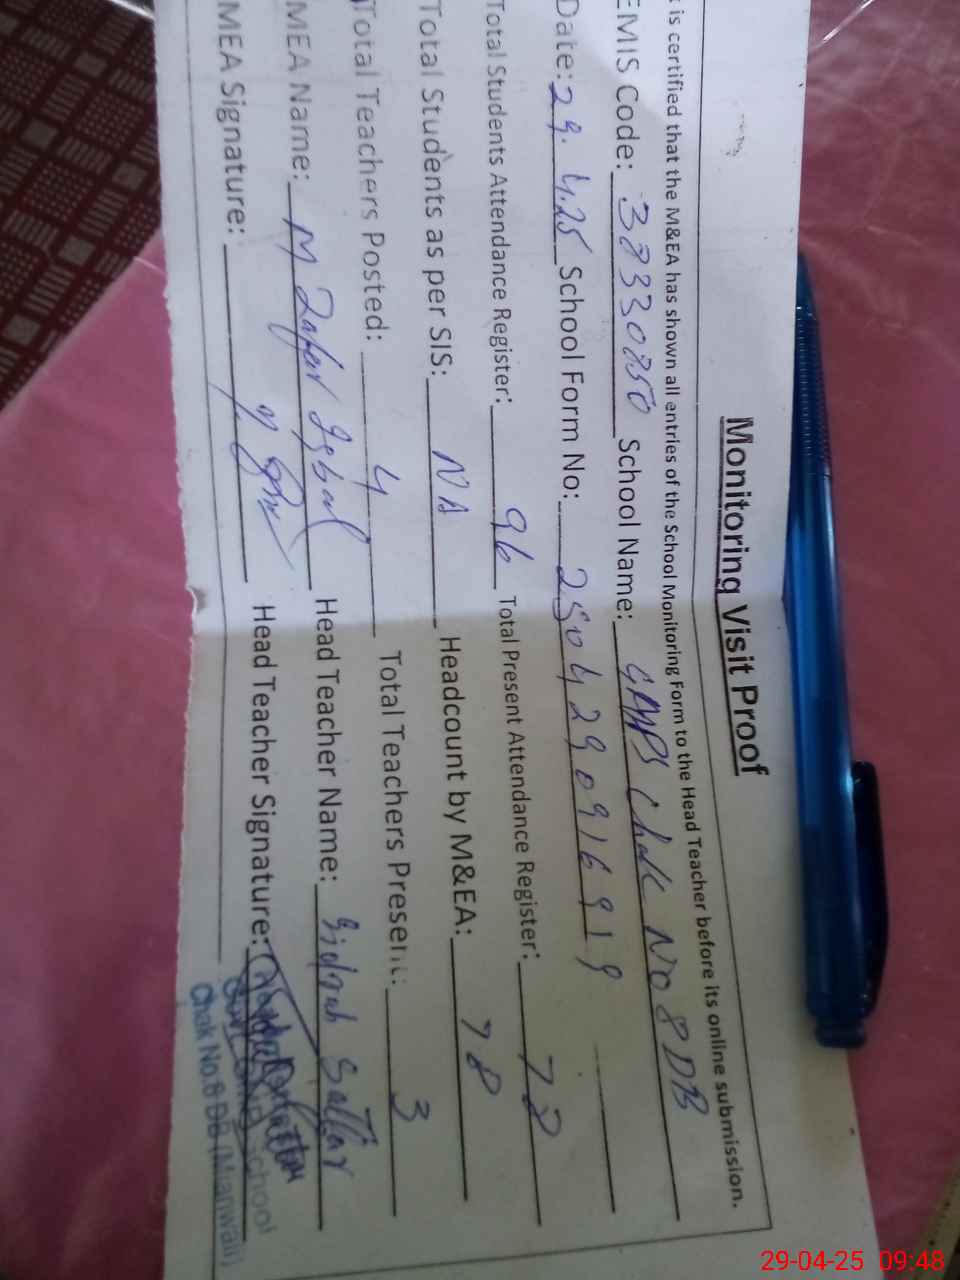 Monitoring Visit Proof
is certified that the M&EA has shown all entries of the School Monitoring Form to the Head Teacher before its online submission.
EMIS Code: 38330850 School Name: GMPS Chak No 8 DB
Date: 29.4.25 School Form No: 2504290916919
Total Students Attendance Register: 96 Total Present Attendance Register: 78
Total Students as per SIS: NA Headcount by M&EA: 78
Total Teachers Posted: 4 Total Teachers Present: 3
MEA Name: M Zafar Iqbal Head Teacher Name: Sidrah Sattar
MEA Signature: Head Teacher Signature:
School
Chak No.8 DB (Mianwali)
29-04-25 09:48